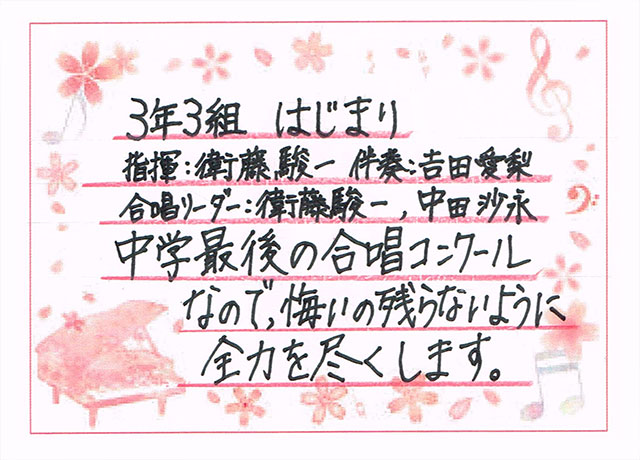 3年3組 はじまり
指揮:衛藤駿一 伴奏:吉田愛梨
合唱リーダー:衛藤駿一,中田沙永
中学最後の合唱コンクール
なので,悔いの残らないように
全力を尽くします。